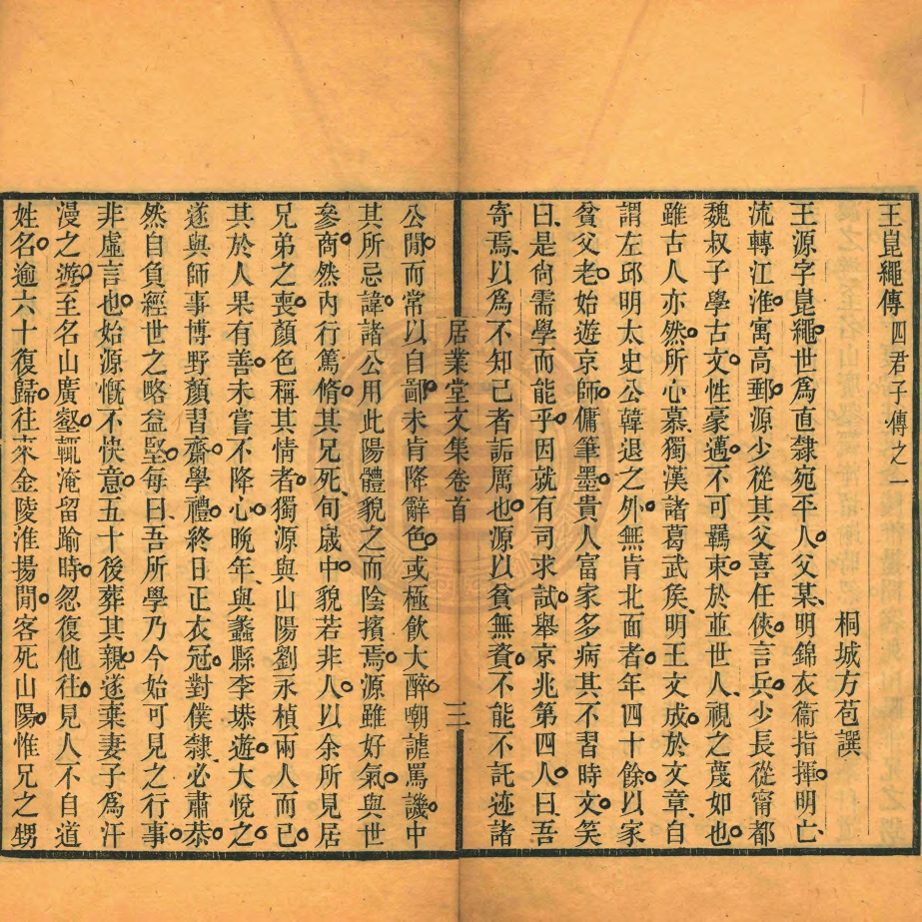 王崑繩傳四君子傳之一
桐城方苞譔
王源字崑繩世爲直隸宛平人父某明錦衣衞指揮明亡
流轉江淮寓高郵源少從其父喜任俠言兵少長從甯都
魏叔子學古文性豪邁不可羈束於並世人視之蔑如也
雖古人亦然所心慕獨漢諸葛武矦明王文成於文章自
謂左邱明太史公韓退之外無肯北面者年四十餘以家
貧父老始遊京師傭筆墨貴人富家多病其不習時文笑
曰是尙需學而能乎因就有司求試舉京兆第四人曰吾
寄焉以爲不知己者詬厲也源以貧無資不能不託迹諸
居業堂文集卷首
三
公閒而常以自鄙未肯降辭色或極飮大醉嘲謔罵譏中
其所忌諱諸公用此陽體貌之而陰擯焉源雖好氣與世
參商然內行篤脩其兄死旬歲中貌若非人以余所見居
兄弟之喪顏色稱其情者獨源與山陽劉永楨兩人而已
其於人果有善未嘗不降心晚年與蠡縣李塨遊大悅之
遂與師事博野顏習齋學禮終日正衣冠對僕隸必肅恭
然自負經世之略益堅每曰吾所學乃今始可見之行事
非虛言也始源慨不快意五十後葬其親遂棄妻子爲汗
漫之遊至名山廣壑輒淹留踰時忽復他往見人不自道
姓名逾六十復歸往來金陵淮揚閒客死山陽惟兄之甥